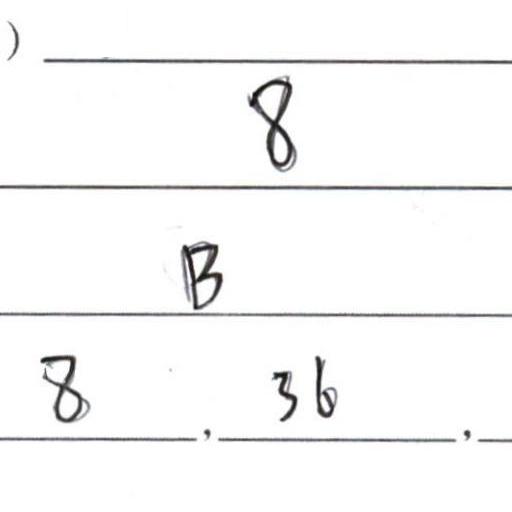 )
8
B
8 , 36 ,